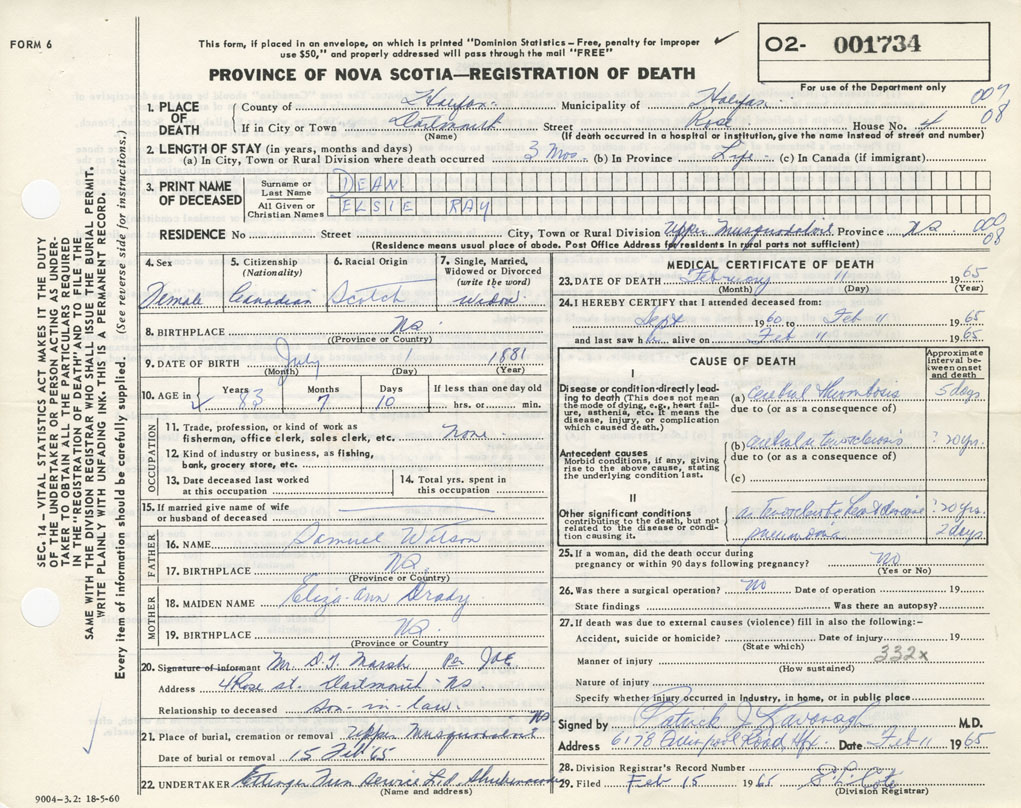 FORM 6
This form, if placed in an envelope, on which is printed "Dominion Statistics – Free, penalty for improper
use $50," and properly addressed will pass through the mail "FREE"
02- 001734
For use of the Department only
PROVINCE OF NOVA SCOTIA—REGISTRATION OF DEATH
1. PLACE OF DEATH County of Halifax Municipality of Halifax 007
If in City or Town Dartmouth Street Rose House No. 4 08
(Name) (If death occurred in a hospital or institution, give the name instead of street and number)
2. LENGTH OF STAY (in years, months and days)
(a) In City, Town or Rural Division where death occurred 3 Mos. (b) In Province Life (c) In Canada (if immigrant)
3. PRINT NAME OF DECEASED Surname or Last Name DEAN
All Given or Christian Names ELSIE RAY
RESIDENCE No Street City, Town or Rural Division Upper Musquodoboit Province NS 000 08
(Residence means usual place of abode. Post Office Address for residents in rural parts not sufficient)
4. Sex Female
5. Citizenship (Nationality) Canadian
6. Racial Origin Scotch
7. Single, Married, Widowed or Divorced (write the word) Widow
8. BIRTHPLACE NS.
(Province or Country)
9. DATE OF BIRTH July 1 1881
(Month) (Day) (Year)
10. AGE in Years 83 Months 7 Days 10 If less than one day old hrs. or min.
OCCUPATION
11. Trade, profession, or kind of work as
fisherman, office clerk, sales clerk, etc. None
12. Kind of industry or business, as fishing,
bank, grocery store, etc.
13. Date deceased last worked at this occupation
14. Total yrs. spent in this occupation
15. If married give name of wife
or husband of deceased
FATHER
16. NAME Samuel Watson
17. BIRTHPLACE NS.
(Province or Country)
MOTHER
18. MAIDEN NAME Eliza Ann
19. BIRTHPLACE NS.
(Province or Country)
20. Signature of informant Mr. D.T. Marsh Per JOE
Address 4 Rose St. Dartmouth NS.
Relationship to deceased Son-in-law.
21. Place of burial, cremation or removal Upper Musquodoboit NS
Date of burial or removal 15 Feb 65
22. UNDERTAKER Ettinger Fun Service Ltd. Shubenacadie
(Name and address)
MEDICAL CERTIFICATE OF DEATH
23. DATE OF DEATH February 11 1965
(Month) (Day) (Year)
24. I HEREBY CERTIFY that I attended deceased from:
Sept 1960 to Feb 11 1965
and last saw h alive on Feb 11 1965
CAUSE OF DEATH
Approximate interval between onset and death
I
Disease or condition directly leading to death (This does not mean the mode of dying, e.g., heart failure, asthenia, etc. It means the disease, injury, or complication which caused death.)
(a) cerebral thrombosis 5 days
due to (or as a consequence of)
Antecedent causes
Morbid conditions, if any, giving rise to the above cause, stating the underlying condition last.
(b) cerebral arteriosclerosis ? 20 yrs.
due to (or as a consequence of)
(c)
II
Other significant conditions
contributing to the death, but not related to the disease or condition causing it.
arteriosclerotic heart disease ? 20 yrs.
pneumonia 2 days.
25. If a woman, did the death occur during
pregnancy or within 90 days following pregnancy? No
(Yes or No)
26. Was there a surgical operation? No Date of operation 19
State findings Was there an autopsy?
27. If death was due to external causes (violence) fill in also the following:–
Accident, suicide or homicide? Date of injury 19
(State which)
Manner of injury 332x
(How sustained)
Nature of injury
Specify whether injury occurred in Industry, in home, or in public place
Signed by Patrick J Kavanagh M.D.
Address 6178 Road Hfx Date Feb 11 1965
28. Division Registrar's Record Number
29. Filed Feb 15 1965
(Division Registrar)
SEC. 14 – VITAL STATISTICS ACT MAKES IT THE DUTY
OF THE UNDERTAKER OR PERSON ACTING AS UNDER-
TAKER TO OBTAIN ALL THE PARTICULARS REQUIRED
IN THE "REGISTRATION OF DEATH" AND TO FILE THE
SAME WITH THE DIVISION REGISTRAR WHO SHALL ISSUE THE BURIAL PERMIT.
WRITE PLAINLY WITH UNFADING INK. THIS IS A PERMANENT RECORD.
Every item of information should be carefully supplied. (See reverse side for instructions.)
9004-3.2: 18-5-60